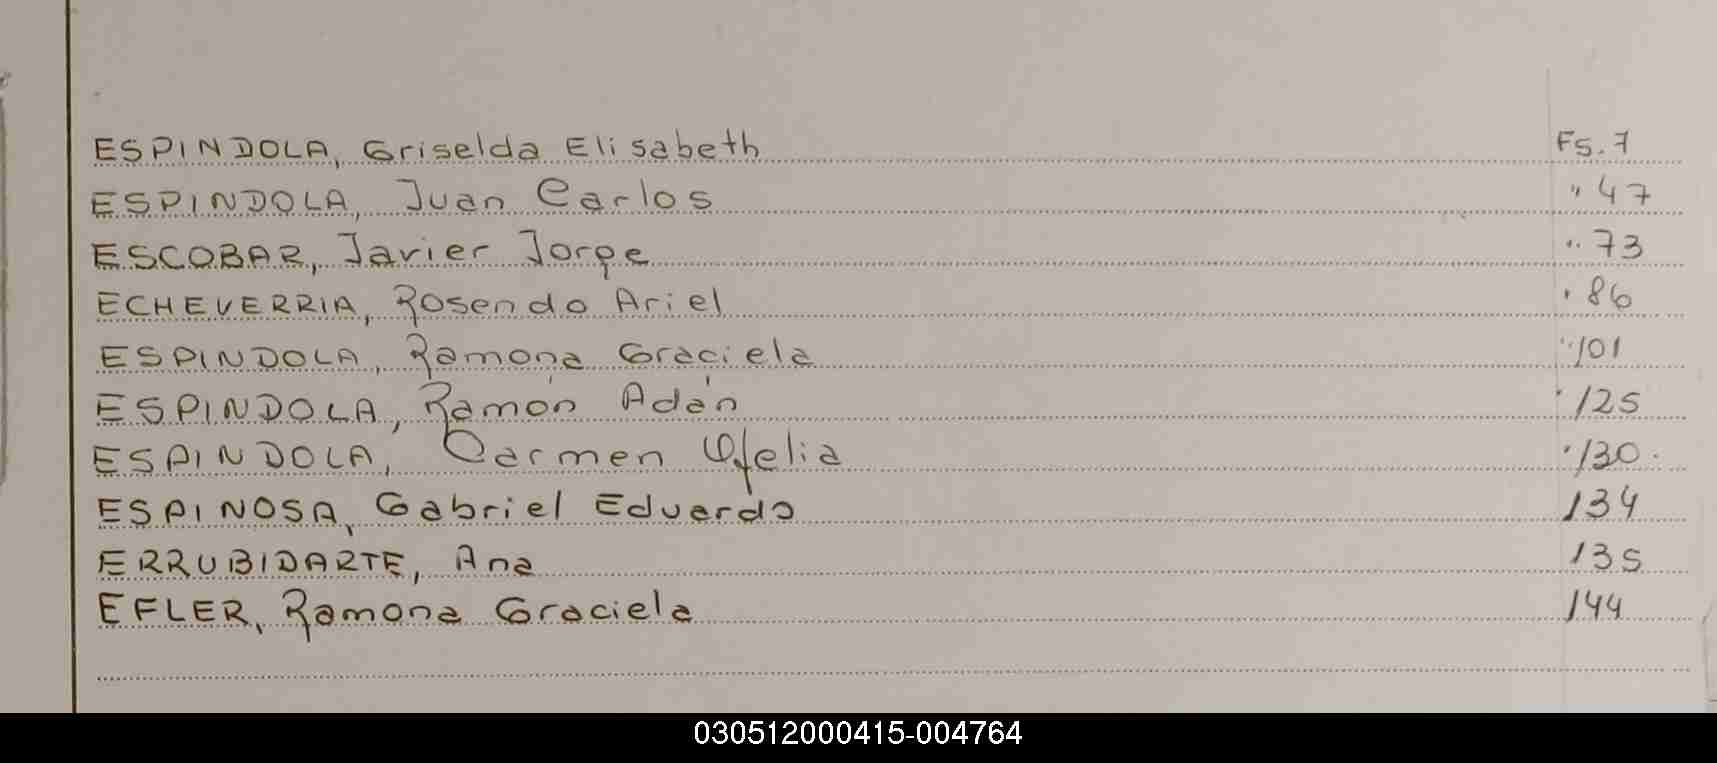 ESPINDOLA, Griselda Elisabeth Fs. 7
ESPINDOLA, Juan Carlos " 47
ESCOBAR, Javier Jorge " 73
ECHEVERRIA, Rosendo Ariel " 86
ESPINDOLA, Ramona Graciela " 101
ESPINDOLA, Ramón Adán " 125
ESPINDOLA, Carmen Ofelia " 130.
ESPINOSA, Gabriel Eduardo 134
ERRUBIDARTE, Ana 135
EFLER, Ramona Graciela 144
030512000415-004764